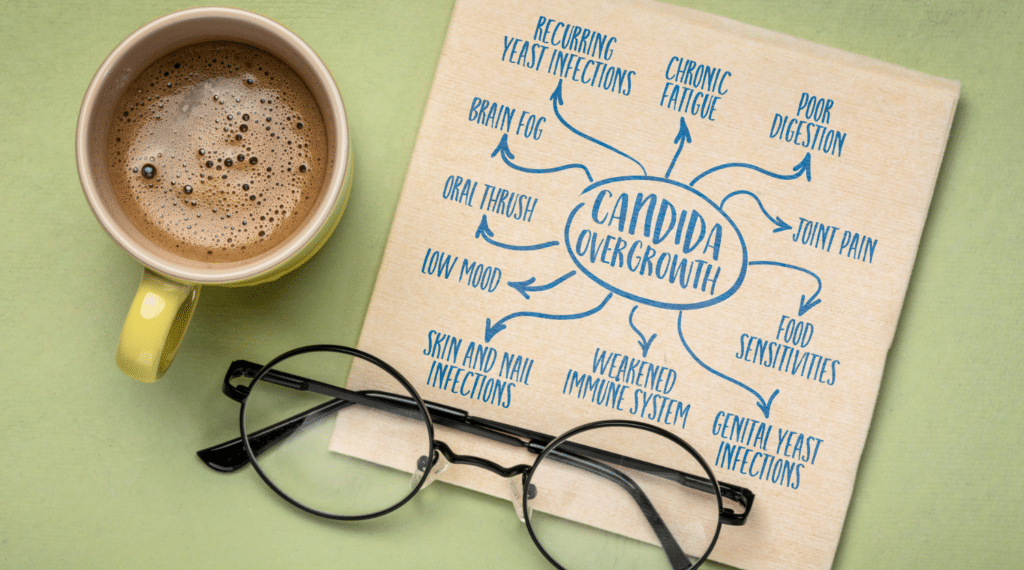 RECURRING
YEAST INFECTIONS
CHRONIC
FATIGUE
POOR
DIGESTION
BRAIN FOG
ORAL THRUSH
CANDIDA
OVERGROWTH
JOINT PAIN
LOW MOOD
FOOD
SENSITIVITIES
SKIN AND NAIL
INFECTIONS
WEAKENED
IMMUNE SYSTEM
GENITAL YEAST
INFECTIONS